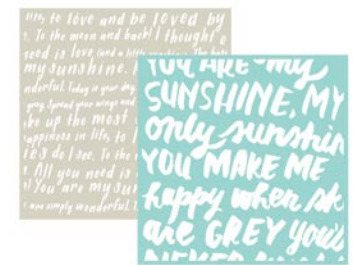 to love and be loved by
To the moon and back! I thought
need is love (and a little sunshine. The
my sunshine.
nderful. Today is your day
grey. Spread your wings and
ke up the most
appiness in life, to l
les do I see. To the
. All you need is
You are my sun
are simply wonderful. T
YOU ARE my
SUNSHINE, MY
only sunshin
YOU MAKE ME
happy when sk
are GREY you'll
NEVER